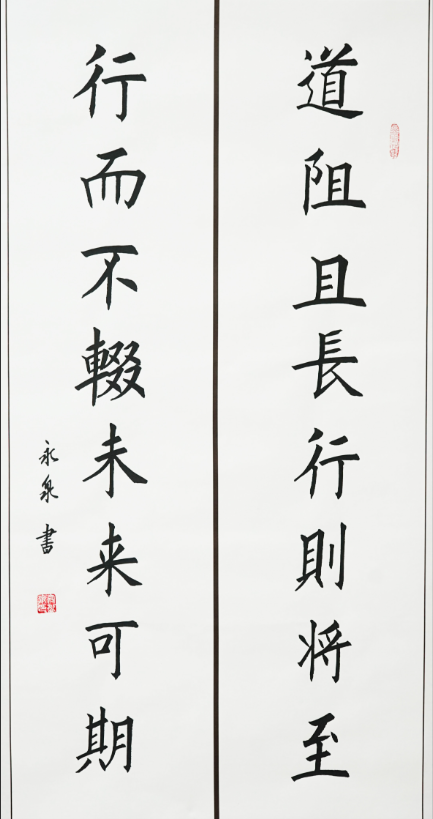 道阻且長行則将至
行而不輟未来可期
永泉書